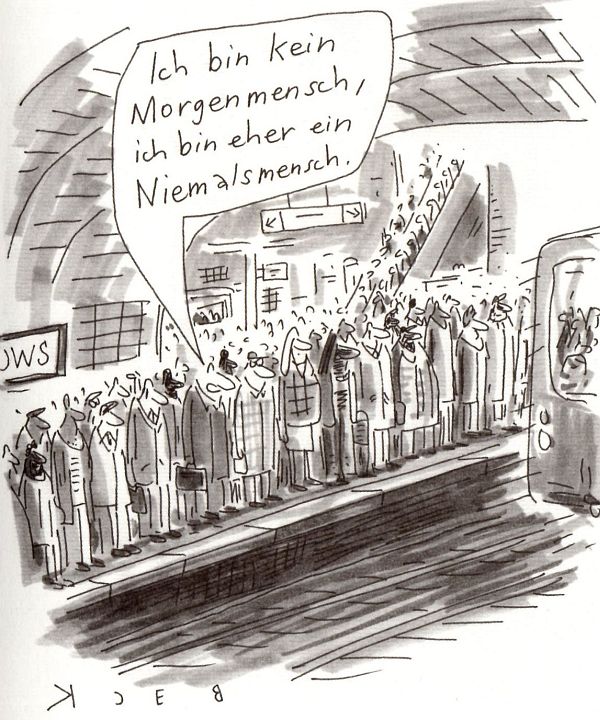 Ich bin kein
Morgenmensch,
ich bin eher ein
Niemalsmensch.
OWS
BECK